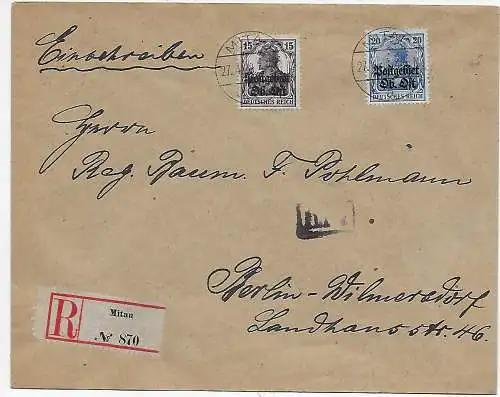 Einschreiben
15 15
Postgebiet
Ob. Ost
DEUTSCHES REICH
20 20
Postgebiet
Ob. Ost
DEUTSCHES REICH
MITAU
27.
Herrn
Reg. Baum. F. Pohlmann
Berlin-Wilmersdorf
Landhausstr. 46.
R
Mitau
№ 870